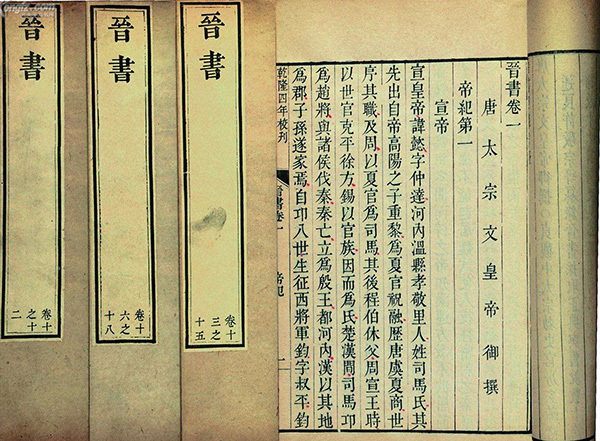 晉書卷一
唐太宗文皇帝御撰
帝紀第一
宣帝
宣皇帝諱懿字仲達河內溫縣孝敬里人姓司馬氏其
先出自帝高陽之子重黎爲夏官祝融歷唐虞夏商世
序其職及周以夏官爲司馬其後程伯休父周宣王時
以世官克平徐方錫以官族因而爲氏楚漢間司馬卬
爲趙將與諸侯伐秦秦亡立爲殷王都河內漢以其地
爲郡子孫遂家焉自卬八世生征西將軍鈞字叔平鈞
乾隆四年校刊 晉書卷一 帝紀 一
晉書
卷十
三之
十五
晉書
卷十
六之
十八
晉書
卷十
之十
二